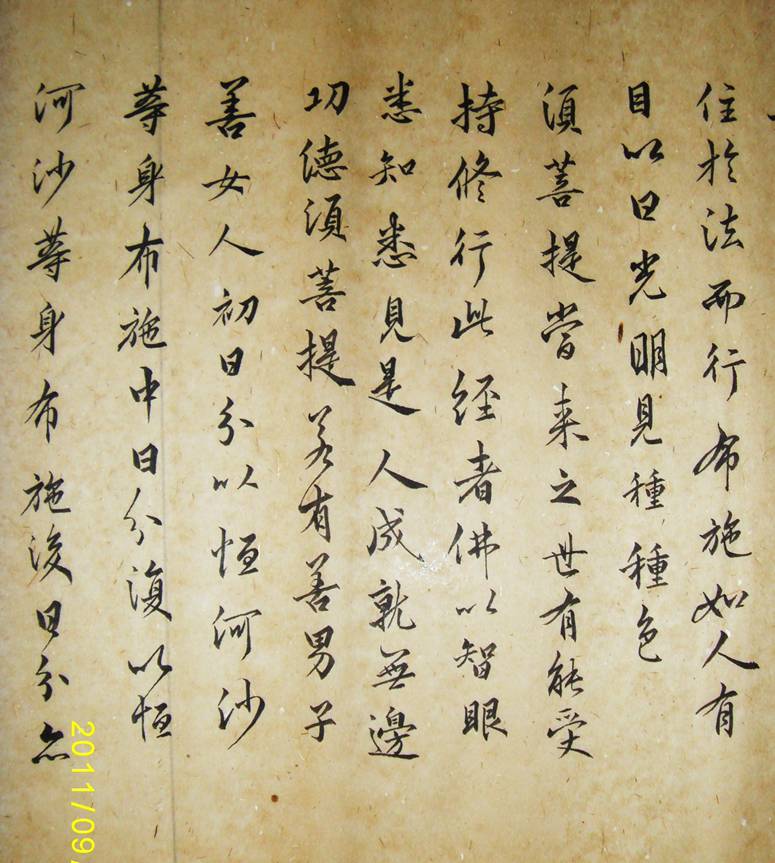 住於法而行布施如人有
目以日光明見種種色
須菩提當来之世有能受
持修行此经者佛以智眼
悉知悉見是人成就無邊
功德須菩提若有善男子
善女人初日分以恒河沙
等身布施中日分復以恒
河沙等身布施後日分亦
2011/09/